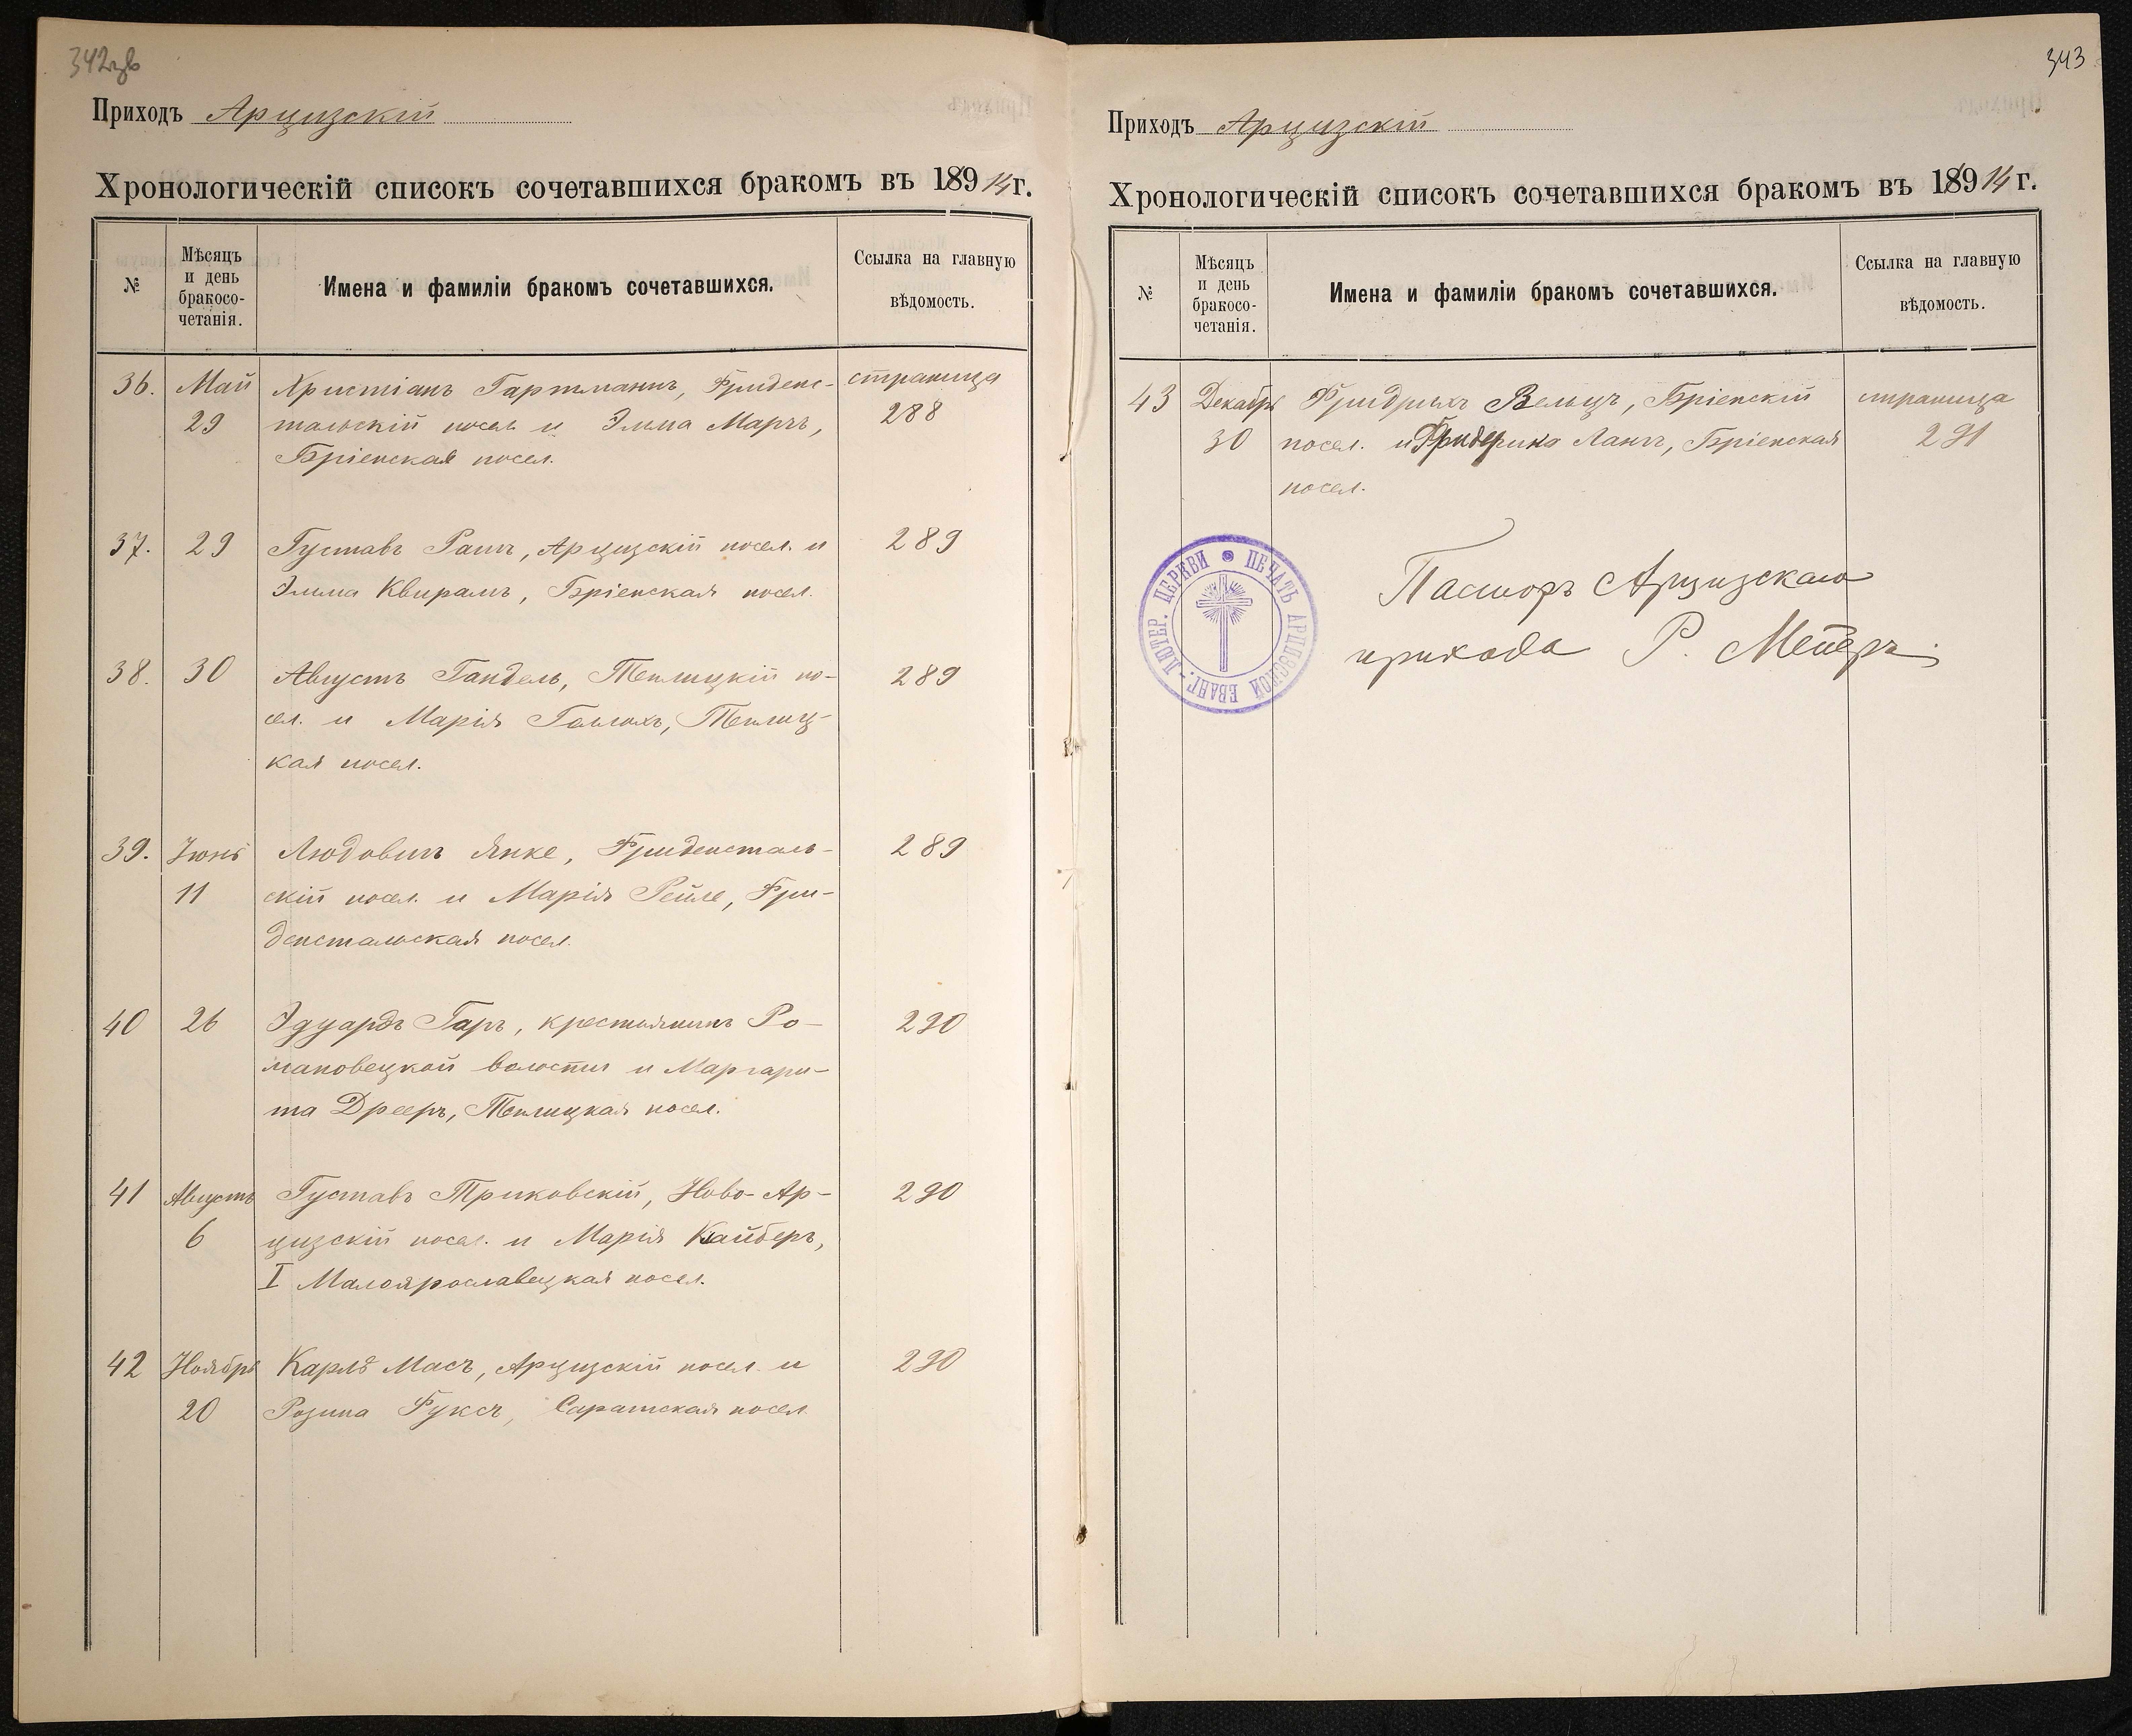 342 об
Приходъ Арцизскій
Хронологическій списокъ сочетавшихся бракомъ въ 18914 г.
№
Мѣсяцъ
и день
бракосо-
четанія.
Имена и фамиліи бракомъ сочетавшихся.
Ссылка на главную
вѣдомость.
36. Май Христіанъ Гартманъ, Фриденс- страница
29 тальскій посел. и Элма Марчъ, 288
Бріенская посел.
37. 29 Густавъ Рашъ, Арцизскій посел. и 289
Эмма Квирамъ, Бріенская посел.
38. 30 Августъ Гандель, Теплицкій по- 289
сел. и Марія Теплиц-
кая посел.
39. Іюнь Людовигъ Янке, Фриденсталь- 289
11 скій посел. и Марія Рейле, Фри-
денстальская посел.
40 26 Эдуардъ Гаръ, крестьянинъ Ро- 290
мановецкой волости и Маргари-
та Дрееръ, Теплицкая посел.
41 Августъ Густавъ Триковскій, Ново-Ар- 290
6 цизскій посел. и Марія Кайберъ,
I Малоярославецкая посел.
42 Ноябрь Карлъ Масъ, Арцизскій посел. и 290
20 Розина Фуксъ, Саратская посел.
343
Приходъ Арцизскій
Хронологическій списокъ сочетавшихся бракомъ въ 18914 г.
№
Мѣсяцъ
и день
бракосо-
четанія.
Имена и фамиліи бракомъ сочетавшихся.
Ссылка на главную
вѣдомость.
43 Декабрь Фридрихъ Вельцъ, Бріенскій страница
30 посел. и Фридерика Лангъ, Бріенская 291
посел.
ПЕЧАТЬ АРЦИЗСКОЙ ЕВАНГ.-ЛЮТЕР. ЦЕРКВИ
Пасторъ Арцизскаго
прихода Р. Мейеръ.